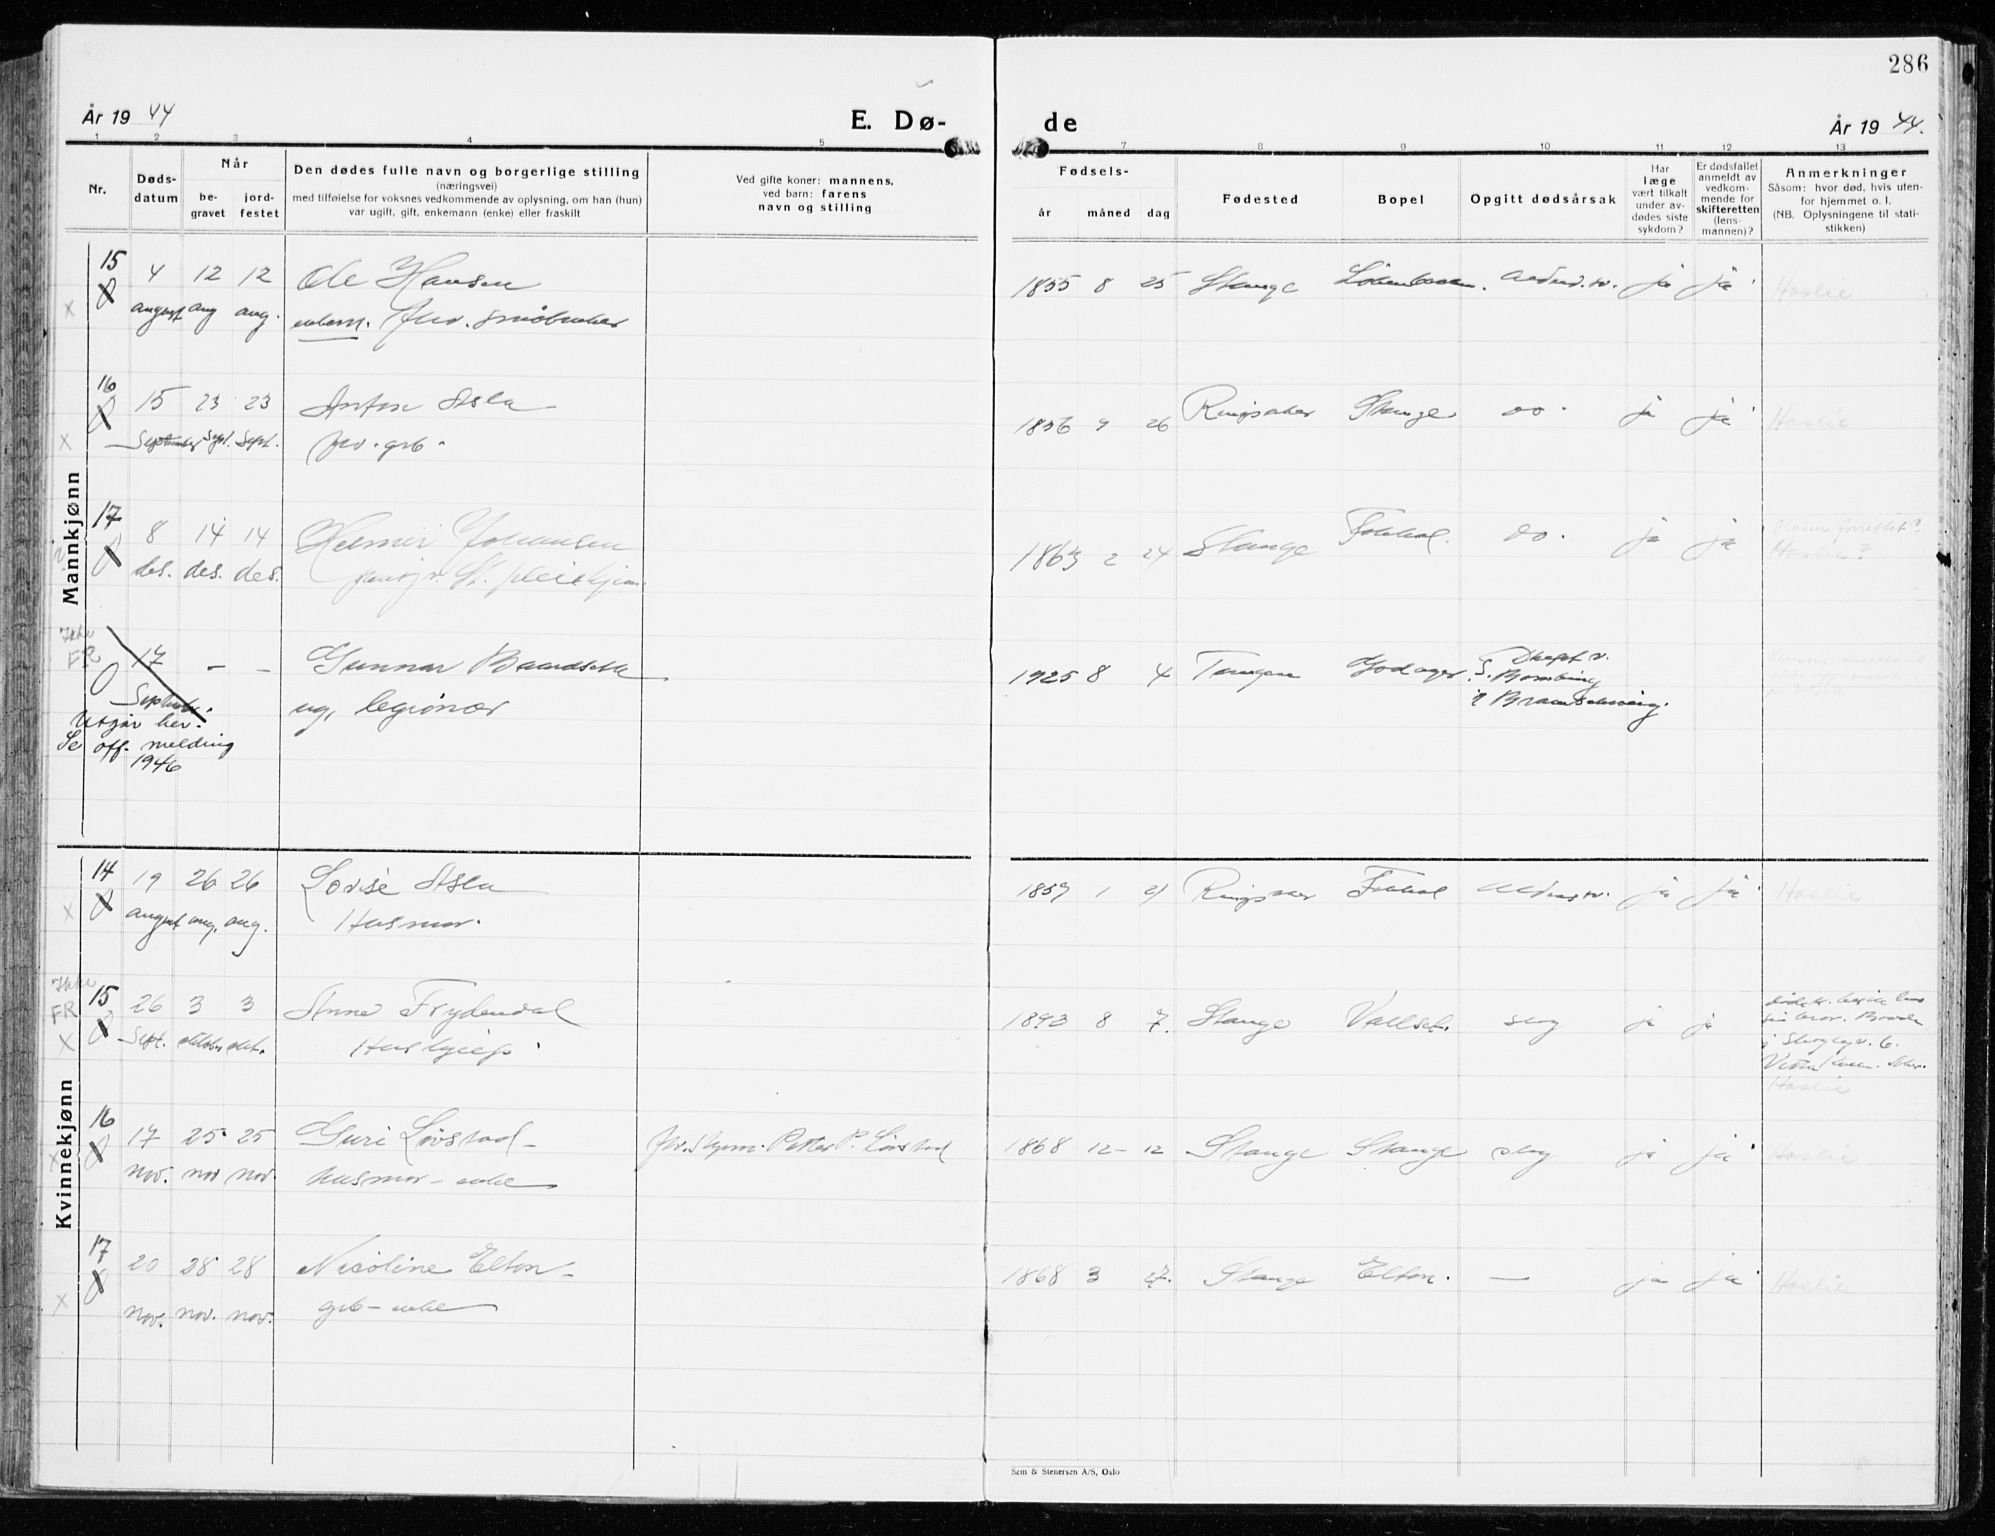 286
År 19 44
E. Dø-
de
År 19 44.
1 2 3 4 5
7 8 9 10 11 12 13
Nr.
Døds-
datum
Når
be-
gravet
jord-
festet
Den dødes fulle navn og borgerlige stilling
(næringsvei)
med tilføielse for voksnes vedkommende av oplysning, om han (hun)
var ugift, gift, enkemann (enke) eller fraskilt
Ved gifte koner: mannens,
ved barn: farens
navn og stilling
Fødsels-
år måned dag
Fødested
Bopel
Opgitt dødsårsak
Har
læge
vært tilkalt
under av-
dødes siste
sykdom?
Er dødsfallet
anmeldt av
vedkom-
mende for
skifteretten
(lens-
mannen)?
Anmerkninger
Såsom: hvor død, hvis uten-
for hjemmet o. l.
(NB. Oplysningene til stati-
stikken)
Mannkjønn
15
4 12 12 Ole Hansen
august aug aug. enkem. fhv. småbruker
1855 8 25 Stange ja ja
Haslie
16
15 23 23 Anton Asla
September Sept. Sept. fhv. grb.
1856 9 26 Ringsaker Stange do. ja ja
Haslie
17
8 14 14 Helmer Johansen
des. des. des.
1863 2 24 Stange Fokhol. do. ja ja
Haslie?
Ikke
FR
17 - - Gunnar
Septbr. ug. legionær
Utgår her.
Se off. melding
1946
1925 8 4 Tangen Drept v.
Bombing
i Braunschweig.
Kvinnekjønn
14
19 26 26 Lovise Asla
august aug. aug. Husmor.
1859 1 21 Ringsaker Fokhol ja ja
Haslie
Ikke
FR
15
26 3 3 Anna Frydendal
Sept. oktober okt. Hushjelp
1893 8 7. Stange Vallset. slag ja ja
Haslie
16
17 25 25 Guri Løvstad - Petter P. Løvstad
nov. nov nov. husmor - enke
1868 12 - 12 Stange Stange slag ja ja
Haslie
17
20 28 28 Nicoline Elton -
nov. nov. nov. grb - enke
1868 3 27. Stange Elton. — ja ja
Haslie
Sem & Stenersen A/S, Oslo